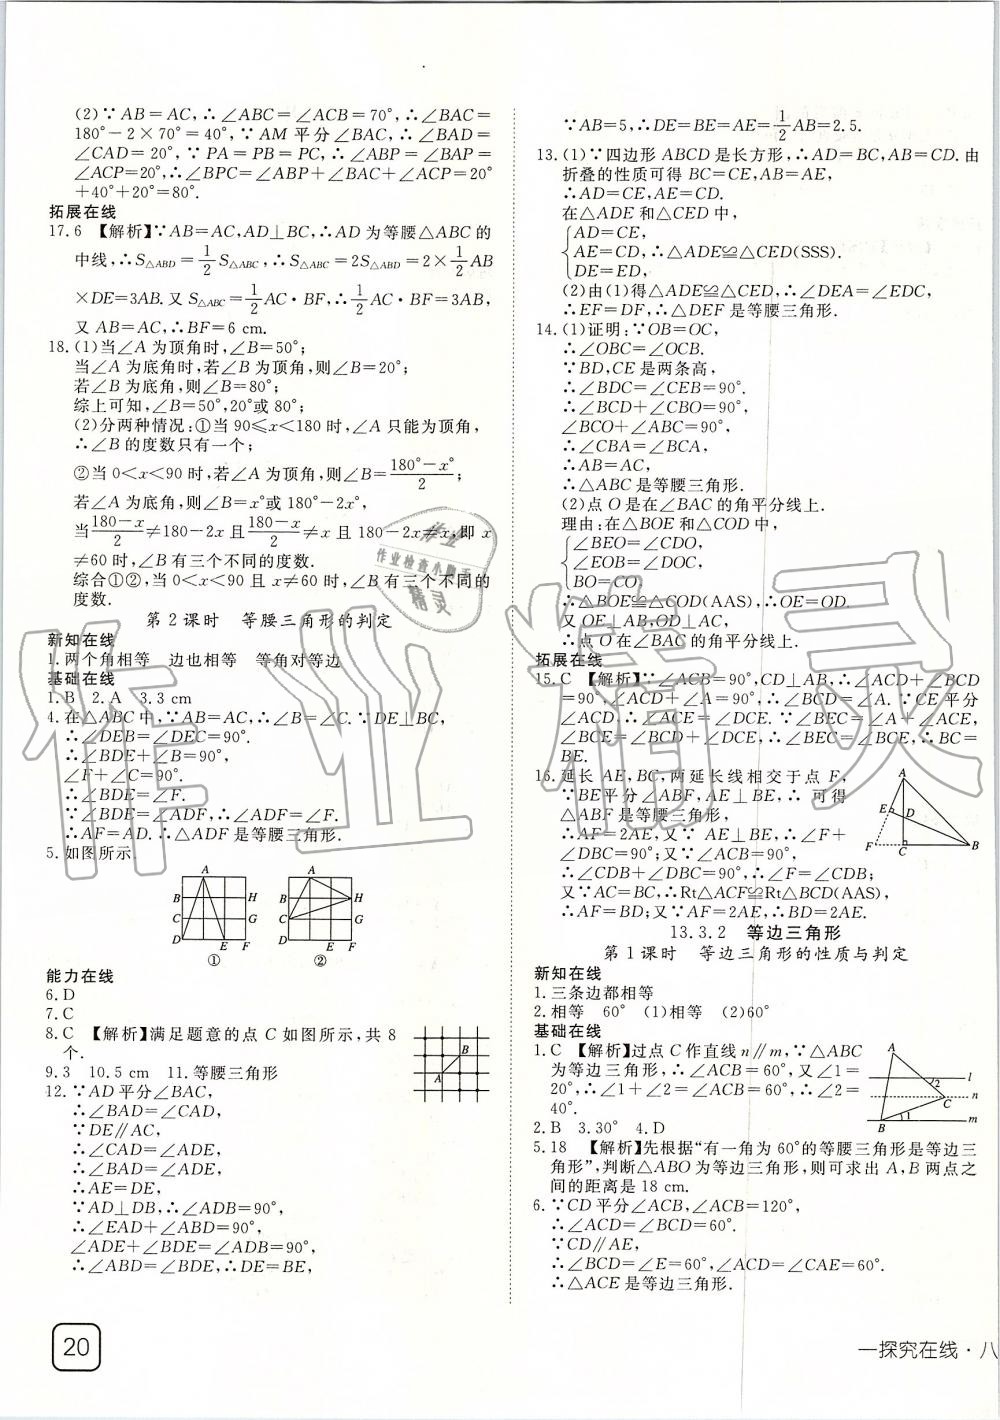 (2)∵AB=AC,∴∠ABC=∠ACB=70°,∴∠BAC=
180°-2×70°=40°,∵AM平分∠BAC,∴∠BAD=
∠CAD=20°,∵PA=PB=PC,∴∠ABP=∠BAP=
∠ACP=20°,∴∠BPC=∠ABP+∠BAC+∠ACP=20°
+40°+20°=80°.
拓展在线
17.6 【解析】∵AB=AC,AD⊥BC,∴AD为等腰△ABC的
中线,∴S△ABD=1/2S△ABC,∴S△ABC=2S△ABD=2×1/2AB
×DE=3AB.又S△ABC=1/2AC·BF,∴1/2AC·BF=3AB,
又AB=AC,∴BF=6 cm.
18.(1)当∠A为顶角时,∠B=50°;
当∠A为底角时,若∠B为顶角,则∠B=20°;
若∠B为底角,则∠B=80°;
综上可知,∠B=50°,20°或80°;
(2)分两种情况:①当90≤x<180时,∠A只能为顶角,
∴∠B的度数只有一个;
②当0<x<90时,若∠A为顶角,则∠B=(180°-x°)/2;
若∠A为底角,则∠B=x°或180°-2x°,
当(180-x)/2≠180-2x且(180-x)/2≠x且180-2x≠x,即x
≠60时,∠B有三个不同的度数.
综合①②,当0<x<90且x≠60时,∠B有三个不同的
度数.
第2课时 等腰三角形的判定
新知在线
1.两个角相等 边也相等 等角对等边
基础在线
1.B 2.A 3.3 cm
4.在△ABC中,∵AB=AC,∴∠B=∠C.∵DE⊥BC,
∴∠DEB=∠DEC=90°.
∴∠BDE+∠B=90°,
∠F+∠C=90°.
∴∠BDE=∠F.
∵∠BDE=∠ADF,∴∠ADF=∠F.
∴AF=AD.∴△ADF是等腰三角形.
5.如图所示.
A A
B H B H
C G C G
D E F D E F
① ②
能力在线
6.D
7.C
8.C 【解析】满足题意的点C如图所示,共8
个.
B
A
9.3 10.5 cm 11.等腰三角形
12.∵AD平分∠BAC,
∴∠BAD=∠CAD,
∵DE∥AC,
∴∠CAD=∠ADE,
∴∠BAD=∠ADE,
∴AE=DE,
∵AD⊥DB,∴∠ADB=90°,
∴∠EAD+∠ABD=90°,
∠ADE+∠BDE=∠ADB=90°,
∴∠ABD=∠BDE,∴DE=BE,
∵AB=5,∴DE=BE=AE=1/2AB=2.5.
13.(1)∵四边形ABCD是长方形,∴AD=BC,AB=CD.由
折叠的性质可得BC=CE,AB=AE,
∴AD=CE,AE=CD.
在△ADE和△CED中,
AD=CE,
AE=CD,∴△ADE≌△CED(SSS).
DE=ED,
(2)由(1)得△ADE≌△CED,∴∠DEA=∠EDC,
∴EF=DF,∴△DEF是等腰三角形.
14.(1)证明:∵OB=OC,
∴∠OBC=∠OCB.
∵BD,CE是两条高,
∴∠BDC=∠CEB=90°.
∴∠BCD+∠CBO=90°,
∠BCO+∠ABC=90°,
∴∠CBA=∠BCA,
∴AB=AC,
∴△ABC是等腰三角形.
(2)点O是在∠BAC的角平分线上.
理由:在△BOE和△COD中,
∠BEO=∠CDO,
∠EOB=∠DOC,
BO=CO,
∴△BOE≌△COD(AAS),∴OE=OD.
又OE⊥AB,OD⊥AC,
∴点O在∠BAC的角平分线上.
拓展在线
15.C 【解析】∵∠ACB=90°,CD⊥AB,∴∠ACD+∠BCD
=90°,∠ACD+∠A=90°,∴∠BCD=∠A.∵CE平分
∠ACD,∴∠ACE=∠DCE.∵∠BEC=∠A+∠ACE,
∠BCE=∠BCD+∠DCE,∴∠BEC=∠BCE,∴BC=
BE.
16.延长AE,BC,两延长线相交于点F,
∵BE平分∠ABF,AE⊥BE,∴可得
△ABF是等腰三角形,
∴AF=2AE,又∵AE⊥BE,∴∠F+
∠DBC=90°;又∠ACB=90°,
∴∠CDB+∠DBC=90°,∴∠F=∠CDB;
又∵AC=BC,∴Rt△ACF≌Rt△BCD(AAS),
∴AF=BD;又∵AF=2AE,∴BD=2AE.
A
E D
F C B
13.3.2 等边三角形
第1课时 等边三角形的性质与判定
新知在线
1.三条边都相等
2.相等 60° (1)相等 (2)60°
基础在线
1.C 【解析】过点C作直线n∥m,∵△ABC
为等边三角形,∴∠ACB=60°,又∠1=
20°,∴∠1+∠2=∠ACB=60°,∴∠2=
40°.
A
2 l
C n
B 1 m
2.B 3.30° 4.D
5.18 【解析】先根据“有一角为60°的等腰三角形是等边三
角形”,判断△ABO为等边三角形,则可求出A,B两点之
间的距离是18 cm.
6.∵CD平分∠ACB,∠ACB=120°,
∴∠ACD=∠BCD=60°.
∵CD∥AE,
∴∠BCD=∠E=60°,∠ACD=∠CAE=60°.
∴△ACE是等边三角形.
作业
作业检查小助手
精灵
作业精灵
20
一探究在线·八